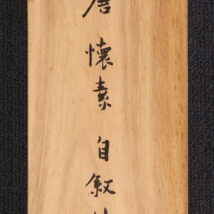 唐懐素自叙